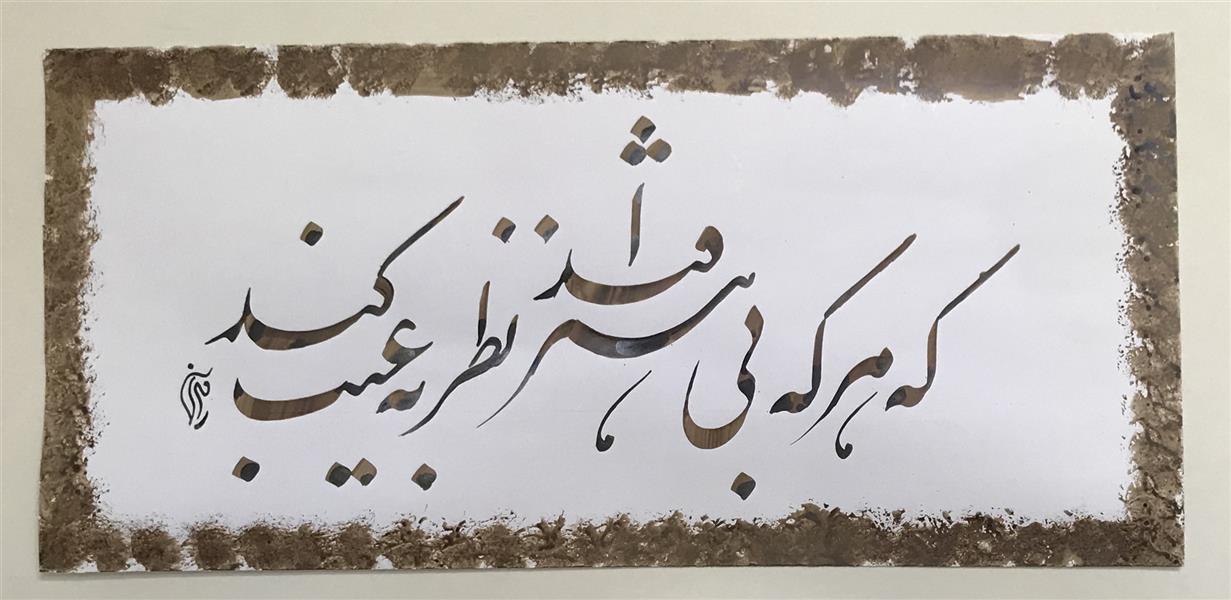 که هر که بی هنر افتد نظر به عیب کند